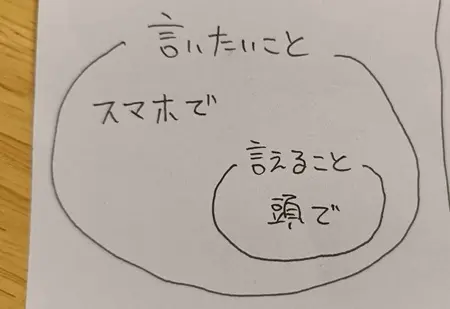 言いたいこと
スマホで
言えること
頭で